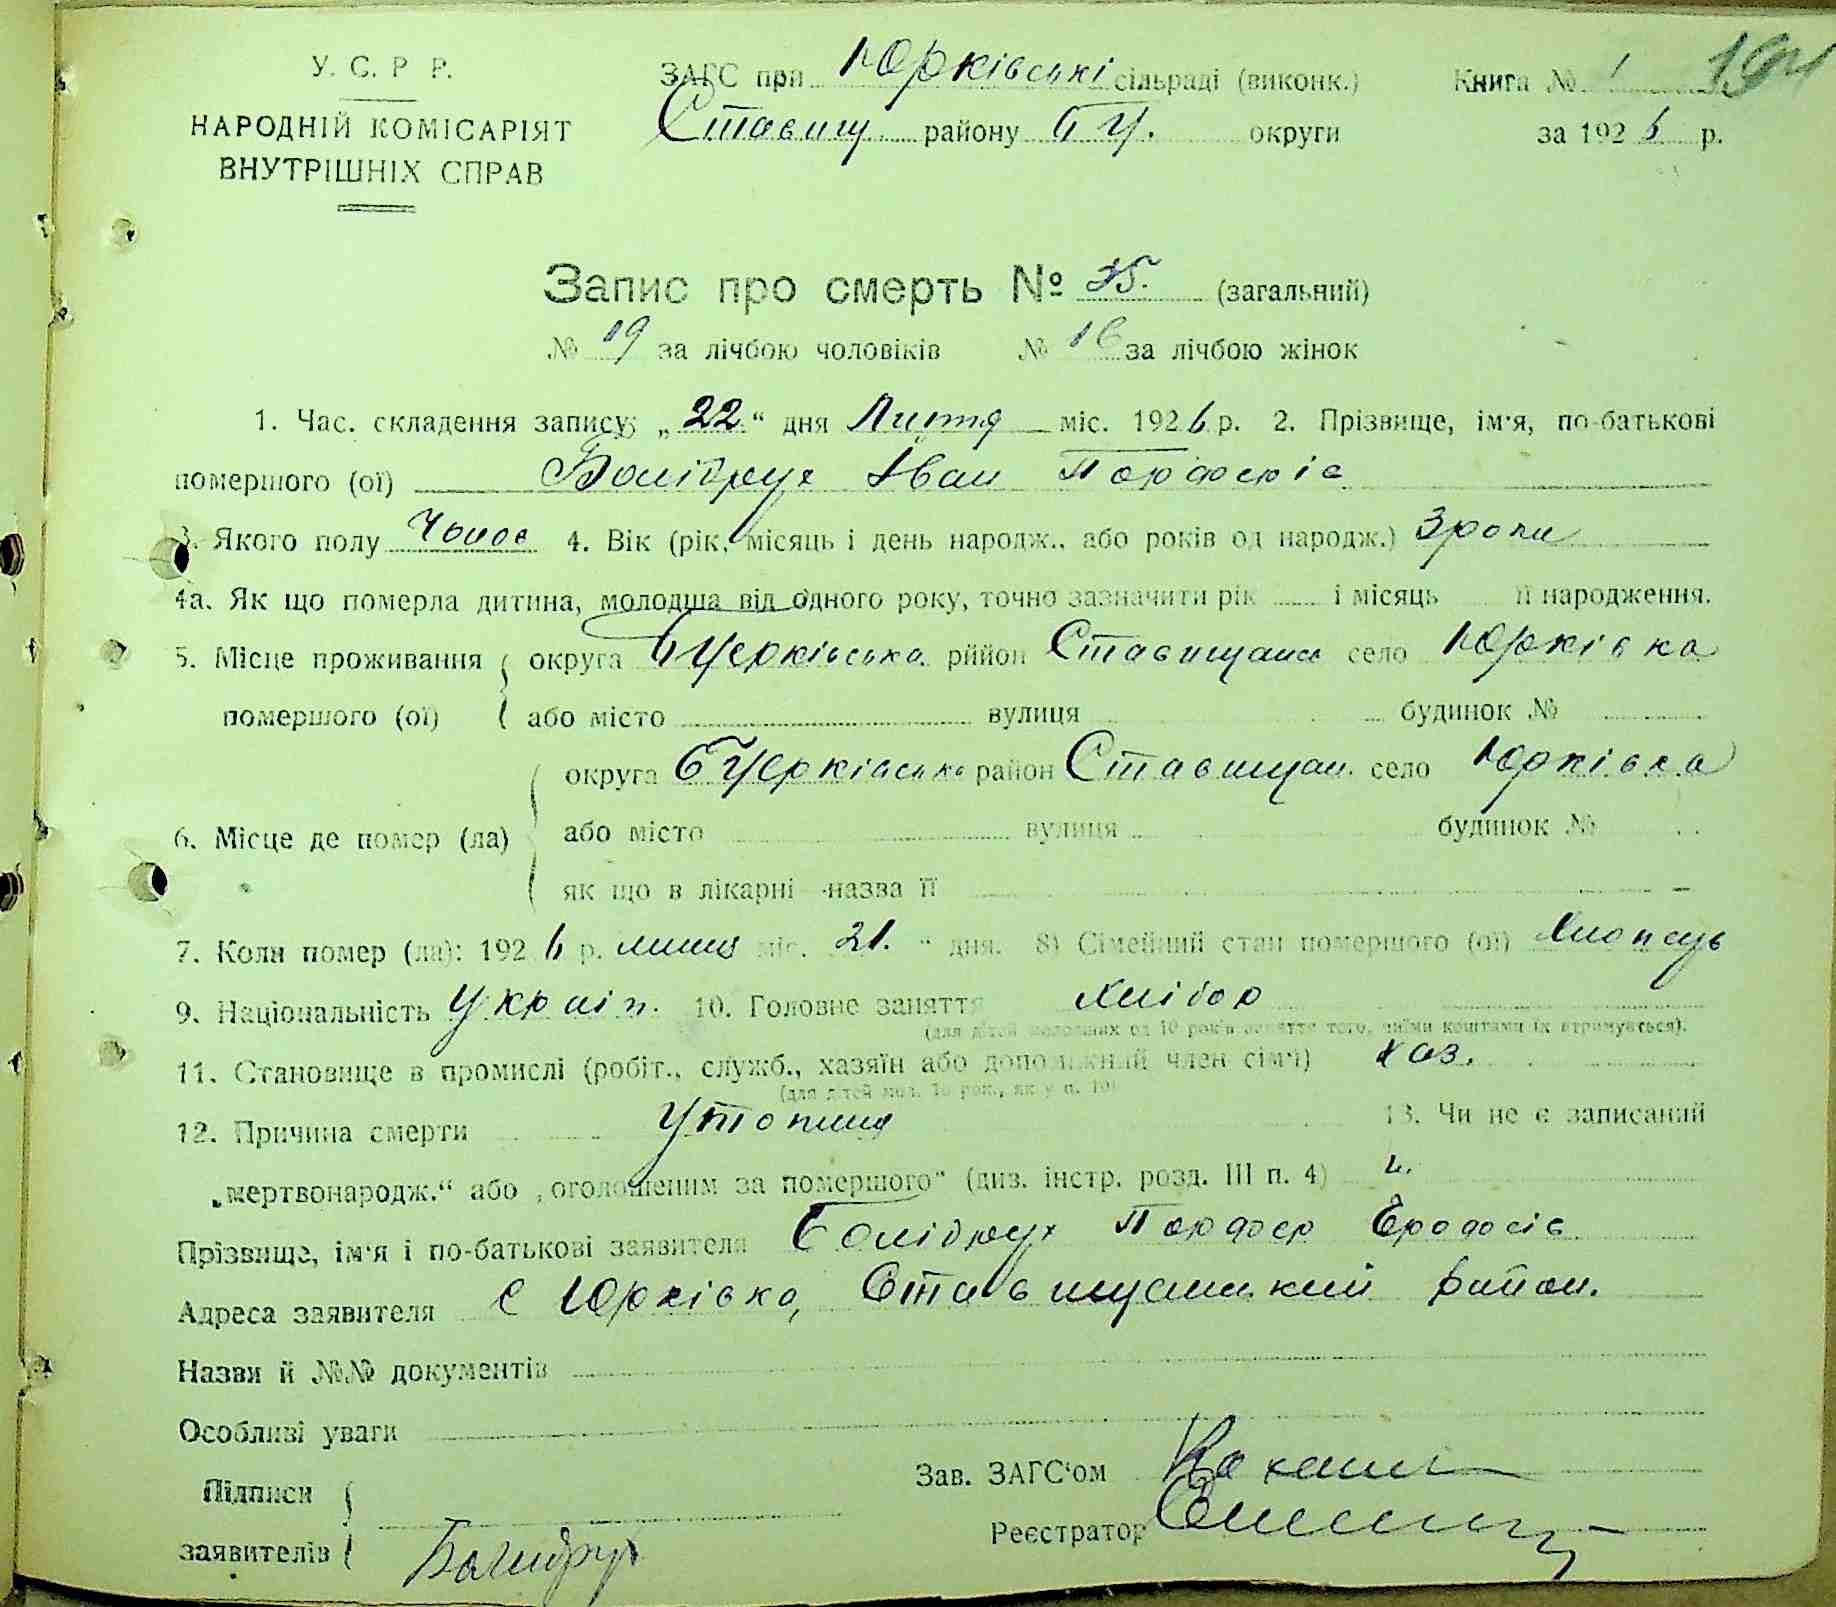 У. С. Р. Р.
НАРОДНІЙ КОМІСАРІЯТ
ВНУТРІШНІХ СПРАВ
ЗАГС при Юрківські сільраді (виконк.)
Ставищ. району БЦ. округи
Книга № 1
за 1926 р.
Запис про смерть № 35. (загальний)
№ 19 за лічбою чоловіків № 16 за лічбою жінок
1. Час. складення запису: „22“ дня міс. 1926 р. 2. Прізвище, ім'я, по-батькові
помершого (ої) Болідрух Іван
3. Якого полу Чолов 4. Вік (рік, місяць і день народж., або років од народж.) 3 роки
4а. Як що померла дитина, молодша від одного року, точно зазначити рік і місяць її народження.
5. Місце проживання округа БЦерківська район Ставищанс село Юрківка
помершого (ої) або місто вулиця будинок №
округа БЦерківська район Ставищан. село Юрківка
6. Місце де помер (ла) або місто вулиця будинок №
як що в лікарні -назва її
7. Коли помер (ла): 1926 р. міс. 21. “ дня. 8) Сімейний стан помершого (ої) Хлопець
9. Національність Україн. 10. Головне заняття Хлібор
(для дітей молодших од 10 років заняття того, чиїми коштами їх втримується).
11. Становище в промислі (робіт., служб., хазяїн або допоміжний член сім'ї) хаз.
(для дітей мол. 10 рок., як у п. 10)
12. Причина смерти 13. Чи не є записаний
„мертвонародж.“ або „оголошеним за помершого“ (див. інстр. розд. III п. 4) н.
Прізвище, ім'я і по-батькові заявителя Болідрух
Адреса заявителя с Юрківка, Ставищанский район.
Назви й №№ документів
Особливі уваги
Підписи
заявителів
Зав. ЗАГС'ом
Реєстратор